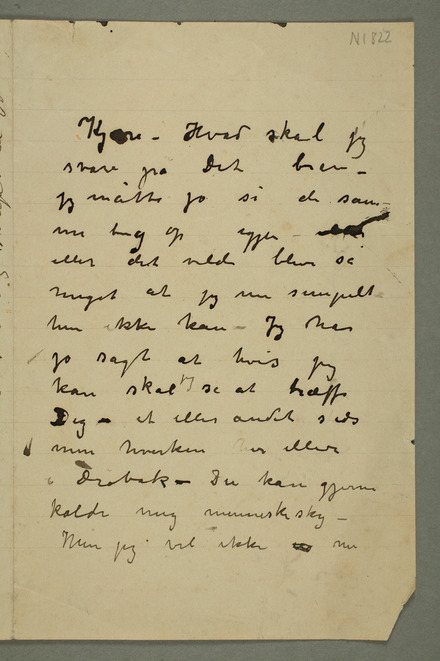 N1822
Kjære – Hvad skal jeg
svare på Det brev –
jeg måtte jo si de sam
me ting op igjen –
eller det vilde blive så
meget at jeg nu simpelt
hen ikke kan – Jeg har
jo sagt at hvis jeg
kan skal jeg se at træffe
Dig – et eller andet steds
men hverken her eller
i Drøbak – Du kan gjerne
kalde mig menneskesky –
Men jeg vil ikke nu